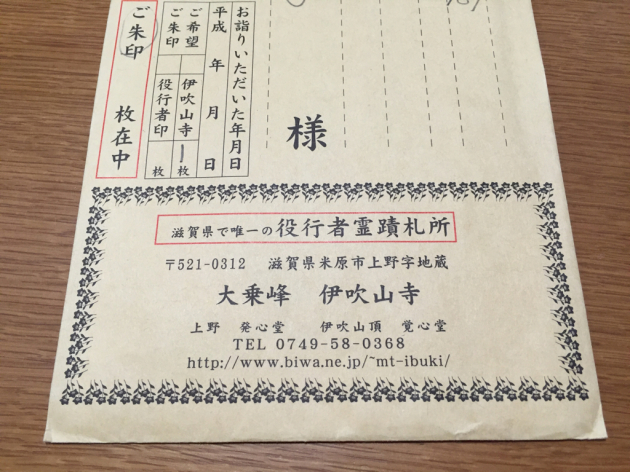 様
お詣りいただいた年月日
平成 年 月 日
ご希望ご朱印
伊吹山寺 一枚
役行者印 枚
ご朱印 枚在中
滋賀県で唯一の役行者霊蹟札所
〒521-0312 滋賀県米原市上野字地蔵
大乗峰 伊吹山寺
上野 発心堂 伊吹山頂 覚心堂
TEL 0749-58-0368
http://www.biwa.ne.jp/~mt-ibuki/